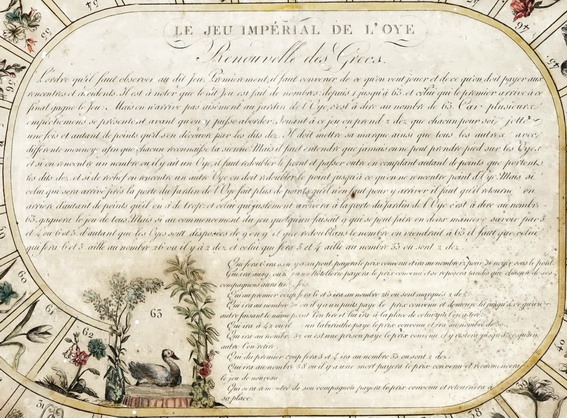 LE JEU IMPÉRIAL DE L'OYE
Renouvellé des Grecs.
L'ordre qu'il faut observer au dit Jeu. Premièrement, il faut convenir de ce qu'on veut jouer et de ce qu'on doit payer aux
rencontres et accidents. Il est à noter que tout Jeu est fait de nombres, depuis 1 jusqu'à 63 et celui qui le premier arrive à ce
point gagne le Jeu. Mais on n'arrive pas aisément au jardin de l'Oye, c'est à dire au nombre de 63. Car plusieurs
empêchemens se présentent avant qu'on y puisse aborder. Jouant à ce jeu on prend 2 dez, que chacun pour soi jette
une fois et autant de points qu'il s'en découvre par les dits dez. Il doit mettre sa marque ainsi que tous les autres avec
différente monnoye afin que chacun reconnaisse la sienne Mais il faut entendre que jamais on ne peut prendre pied sur les Oyes
et si en rencontre un nombre ou il y ait un Oye, il faut redoubler le point et passer outre en comptant autant de points que portent
les dits dez et si de rechef on rencontre un autre Oye on doit redoubler le point jusqu'à ce qu'on ne rencontre point l'Oye. Mais si
celui qui sera arrivé près la porte du Jardin de l'Oye fait plus de points qu'il n'en faut pour y arriver il faut qu'il retourne en
arrière d'autant de points qu'il en a de trop, et celui qui justement arrivera à la porte du Jardin de l'Oye c'est à dire au nombre
63, gagnera le jeu de tous. Mais si au commencement du jeu quelqu'un faisait 9 qui se peut faire en deux manières, savoir par 5
et 4 ou 6 et 3 d'autant que les Oyes sont disposées de 9 en 9, et que redoublant le nombre on viendrait à 63 il faut que celui
qui fera 6 et 3 aille au nombre 26 ou il y a 2 dez, et celui qui fera 5 et 4 aille au nombre 53 ou sont 2 dez.
Qui fera 6 où il y a un pont payera le prix convenu et ira au nombre 12 pour se noyer sous le pont.
Qui ira au 19 ou il y a une hôtellerie payera le prix convenu et se reposera tandis que chacun de ses
compagnons aura tiré fois.
Qui au premier coup fera 6 et 3 ira au nombre 26 ou sont marqués 2 dez.
Qui ira au nombre 31 ou il y a un puits paye le prix convenu et demeure là jusqu'à ce qu'un
autre faisant le même point l'en tire et lui ira à la place de celui qui l'ôtera.
Qui ira à 42 ou il un labirinthe paye le prix convenu et ira au nombre 30.
Qui ira au nombre 52 ou est une prison paye le prix convenu et y restera jusqu'à ce qu'un
autre l'en retire.
Qui du premier coup fera 5 et 4 ira au nombre 53 ou sont 2 dez.
Qui ira au nombre 58 ou il y a une mort payera le prix convenu et recommencera
le jeu de nouveau.
Qui sera à la rencontre de son compagnon payera le prix convenu et retournera à
sa place.
63
62
60